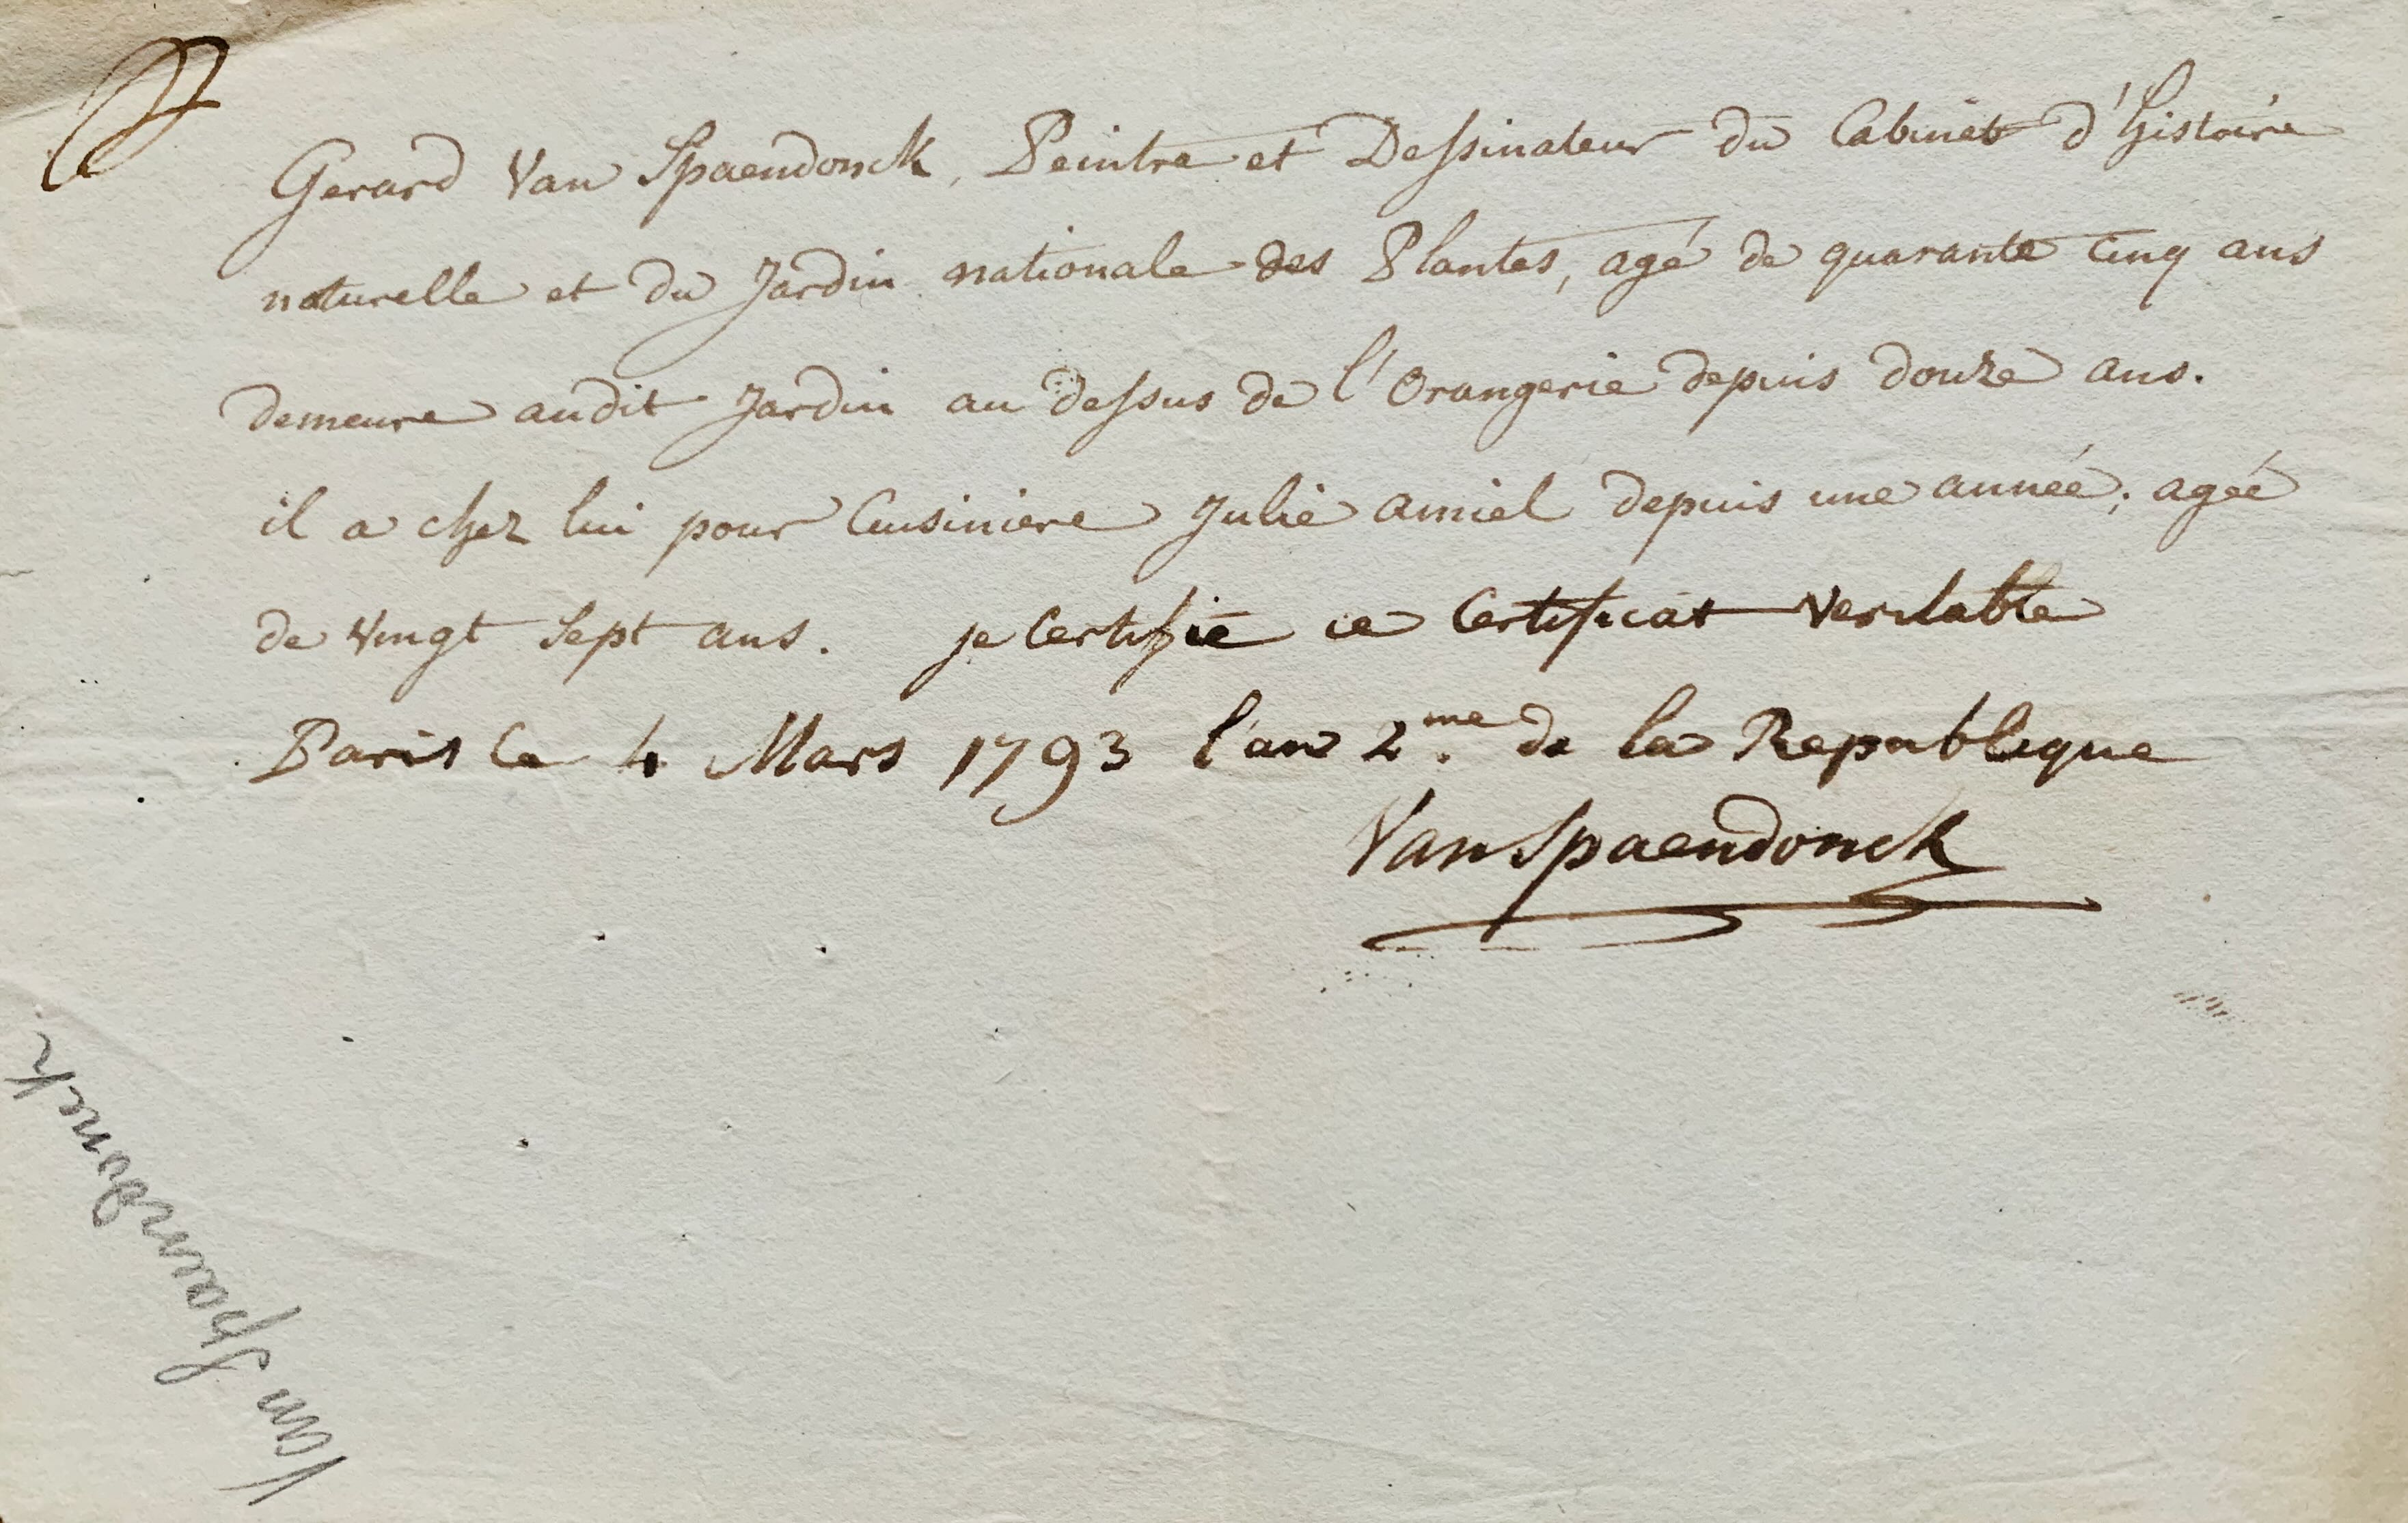 Gerard Van Spaendonck, Peintre et Dessinateur du Cabinet d'histoire
naturelle et du Jardin nationale des Plantes, agé de quarante cinq ans
demeure audit Jardin au dessus de l'Orangerie depuis douze ans.
il a chez lui pour Cuisiniere Julie amiel depuis une année; agée
de vingt Sept ans. je Certifie ce Certificat veritable
Paris le 4 Mars 1793 l'an 2.me de la Republique
Van Spaendonck
Van Spaendonck.